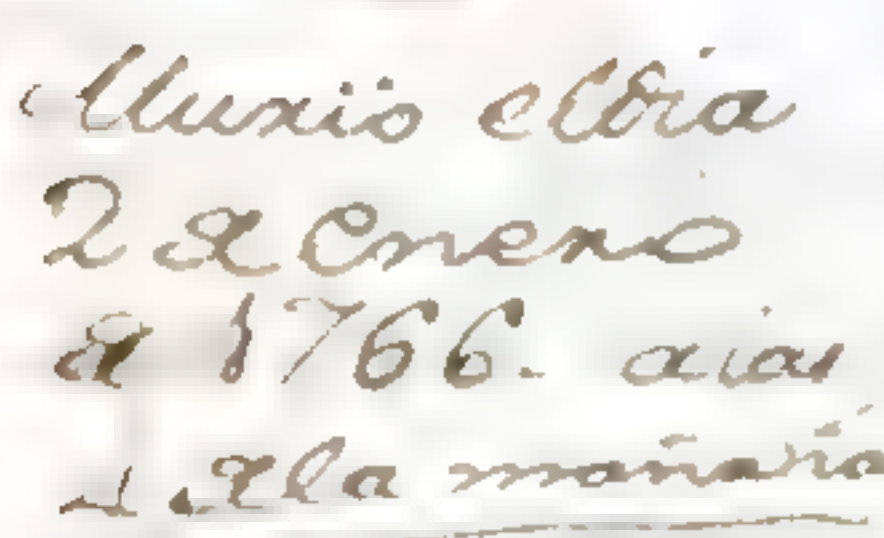 Murió el dia
2 de Enero
de 1766. a las
de la mañana